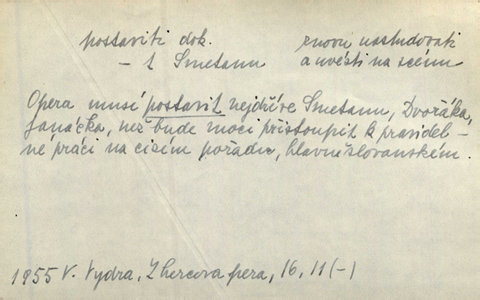 postaviti dok. znovu nastudovati
– t Smetanu a uvésti na scénu
Opera musí postavit nejdříve Smetanu, Dvořáka,
Janáčka, než bude moci přistoupit k pravidel-
né práci na cizím pořadu, hlavně slovanském.
1955 V. Vydra, Z hercova pera, 16, 11 (–)